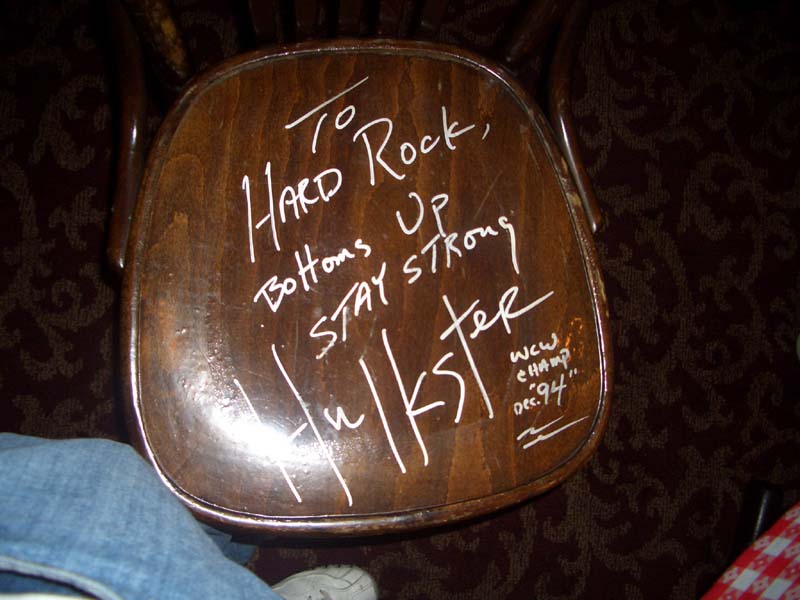 To
HARD Rock,
Bottoms UP
STAY STRONg
HulksTeR
WCW
CHAMP
DEC. "94"